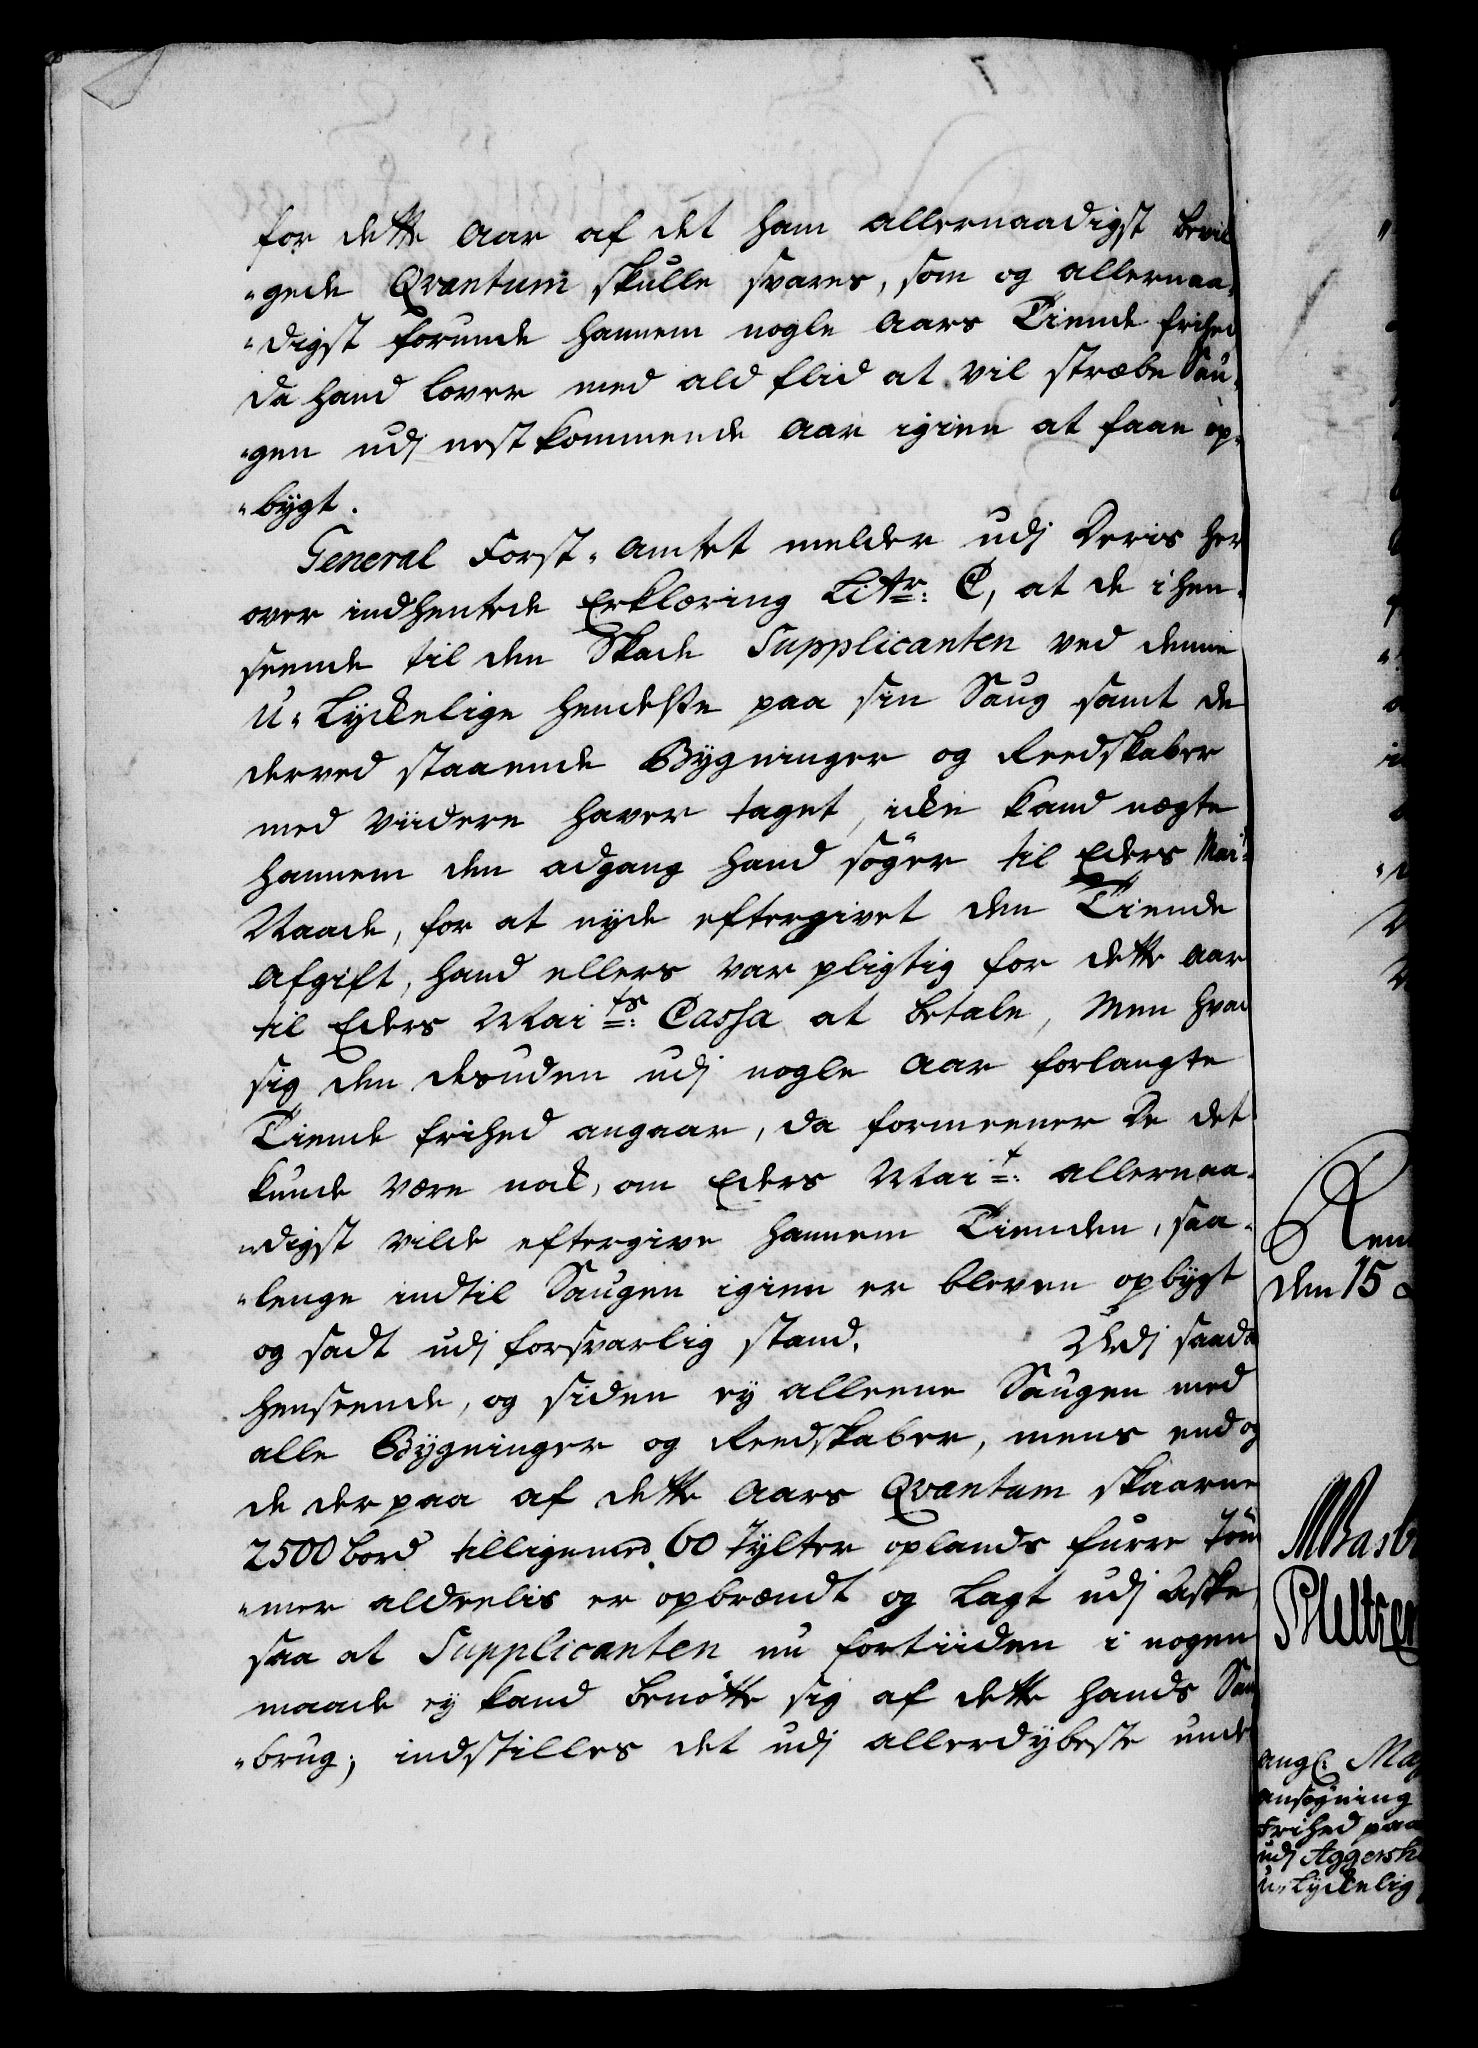 for dette Aar af det ham allernaadigst bevil
-gede Qvantum skulle svares, som og allernaa-
-digst forunde hannem nogle Aars Tiende frihed
da hand lover med ald flid at vil stræbe Sau-
-gen udj nestkommende Aar igien at faae op-
-bÿgt.
General Forst-Amtet melder udj Deris her
over indhentede Erklæring Littr: C, at de i hen-
seende til den Skade Supplicanten ved denne
U-Lyckelige hendelse paa sin Saug samt de
derved staaende Bÿgninger og Reedskaber
med viidere haver taget, icke kand nægte
hannem den adgang hand söger til Eders Mai:
Naade, for at nÿde eftergivet den Tiende
Afgift, hand ellers var pligtig for dette Aar
til Eders Maits: Cassa at betale, Men hvad
sig den desuden udj nogle Aar forlangte
Tiende frihed angaar, da formeener De det
kunde være nok, om Eders Mait: allernaa-
-digst vilde eftergive hannem Tienden, saa-
-lenge indtil Saugen igien er bleven opbÿgt
og sadt udj forsvarlig stand. Udj saada
henseende, og siden eÿ alleene Saugen med
alle Bÿgninger og Reedskaber, mens end og
de derpaa af dette Aars Qvantum skaarne
2500 bord tilligemed 60 Tÿlter oplands furre Töm
-mer aldeelis er opbrændt og Lagt udj Aske,
saa at Supplicanten nu fortiiden i nogen
maade eÿ kand benötte sig af dette hands Sau
-brug; indstilles det udj allerdÿbeste unde
Ren
den 15
ang: Maj
ansøgning
Frihed paa
udj Aggersh
U-Lyckelig